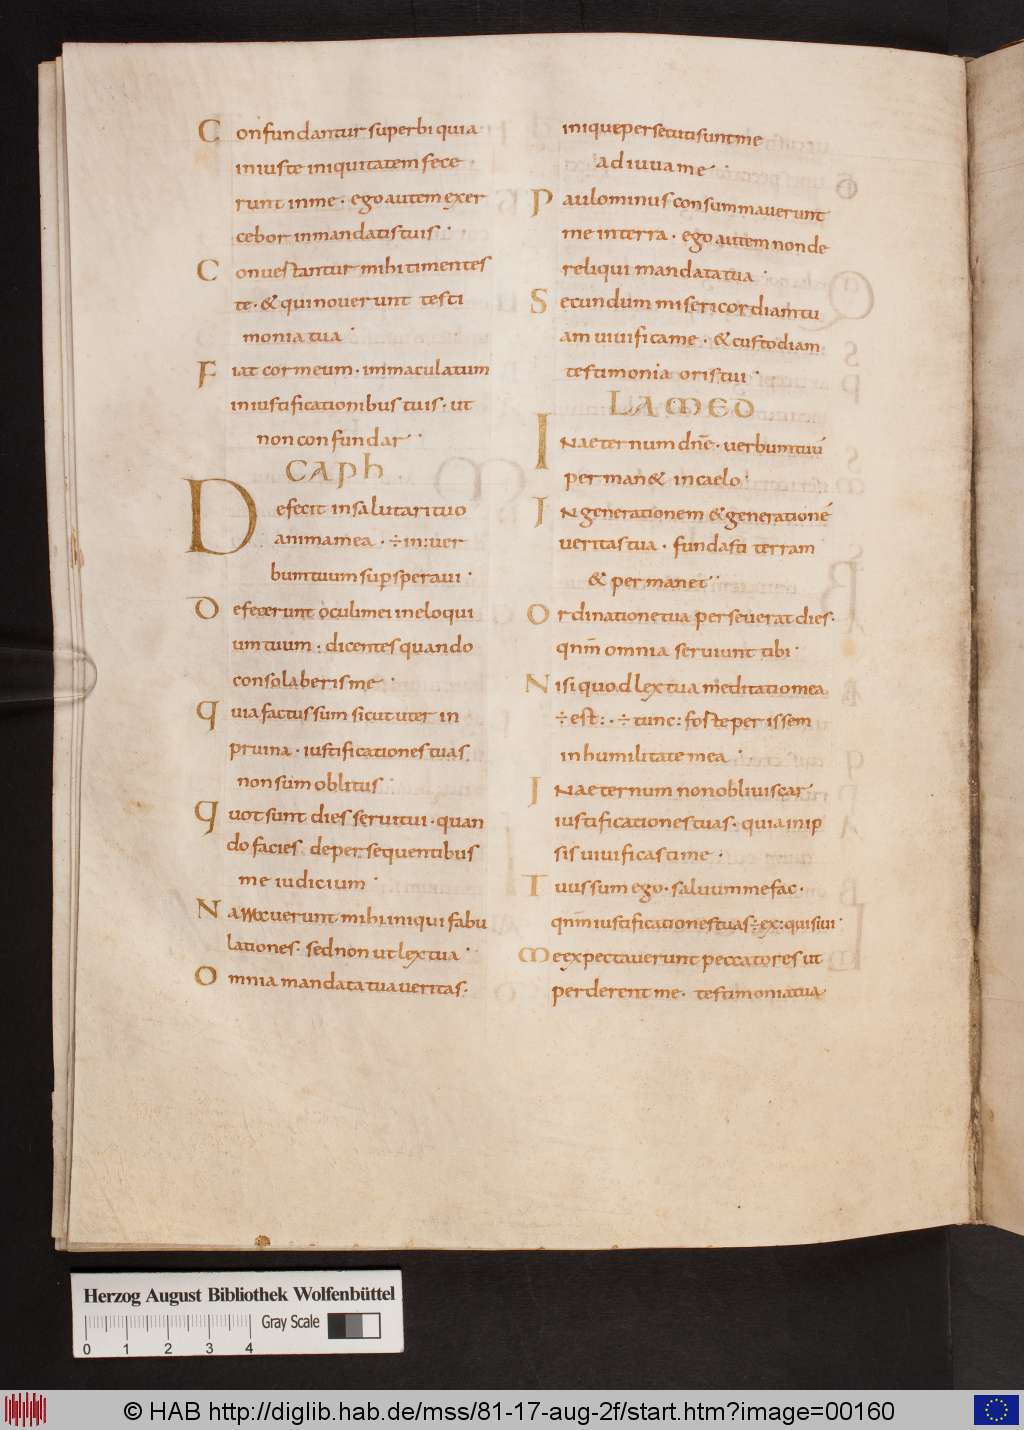 Confundantur superbi quia
iniuste iniquitatem fece
runt inme· ego autem exer
cebor inmandatis tuis·
Convertantur mihi timentes
te· & qui noverunt testi
monia tua
Fiat cor meum· inmaculatum
iniustificationibus tuis· ut
non confundar·
CAPH·
Defecit insalutari tuo
anima mea· ÷in: ver
bum tuum sup speravi·
Defecerunt oculi mei ineloqui
um tuum: dicentes quando
consolaberis me·
Quia factus sum sicut uter in
pruina· iustificationes tuas
non sum oblitus·
Quot sunt dies servi tui· quan
do facies deperseq­uentibus
me iudicium·
Narraverunt mihi iniqui fabu
lationes· sed non ut lex tua·
Omnia mandata tua veritas·
inique persecuti sunt me
adiuva me·
Paulominus consummaverunt
me interra· ego autem non de
reliqui mandata tua·
Secundum misericordiam tu
am vivifica me· & custodiam
testimonia oris tui·
LAMED
INaeternum dñe· verbum tuū
perman& incaelo·
INgenerationem & generationē
veritas tua· fundasti terram
& permanet·
Ordinatione tua perseverat dies·
qnm̄ omnia serviunt tibi·
Nisi quod lex tua meditatio mea
÷est:· ÷tunc: forte perissem
inhumilitate mea·
INaeternum non obliviscar
iustificationes tuas· quia inip
sis vivificasti me·
Tuus sum ego· salvum me fac·
qnm̄ iustificationes tuas ÷ex: quisivi·
Me expectaverunt peccatores ut
perderent me· testimonia tua·
Herzog August Bibliothek Wolfenbüttel
Gray Scale
0 1 2 3 4
© HAB http://diglib.hab.de/mss/81-17-aug-2f/start.htm?image=00160